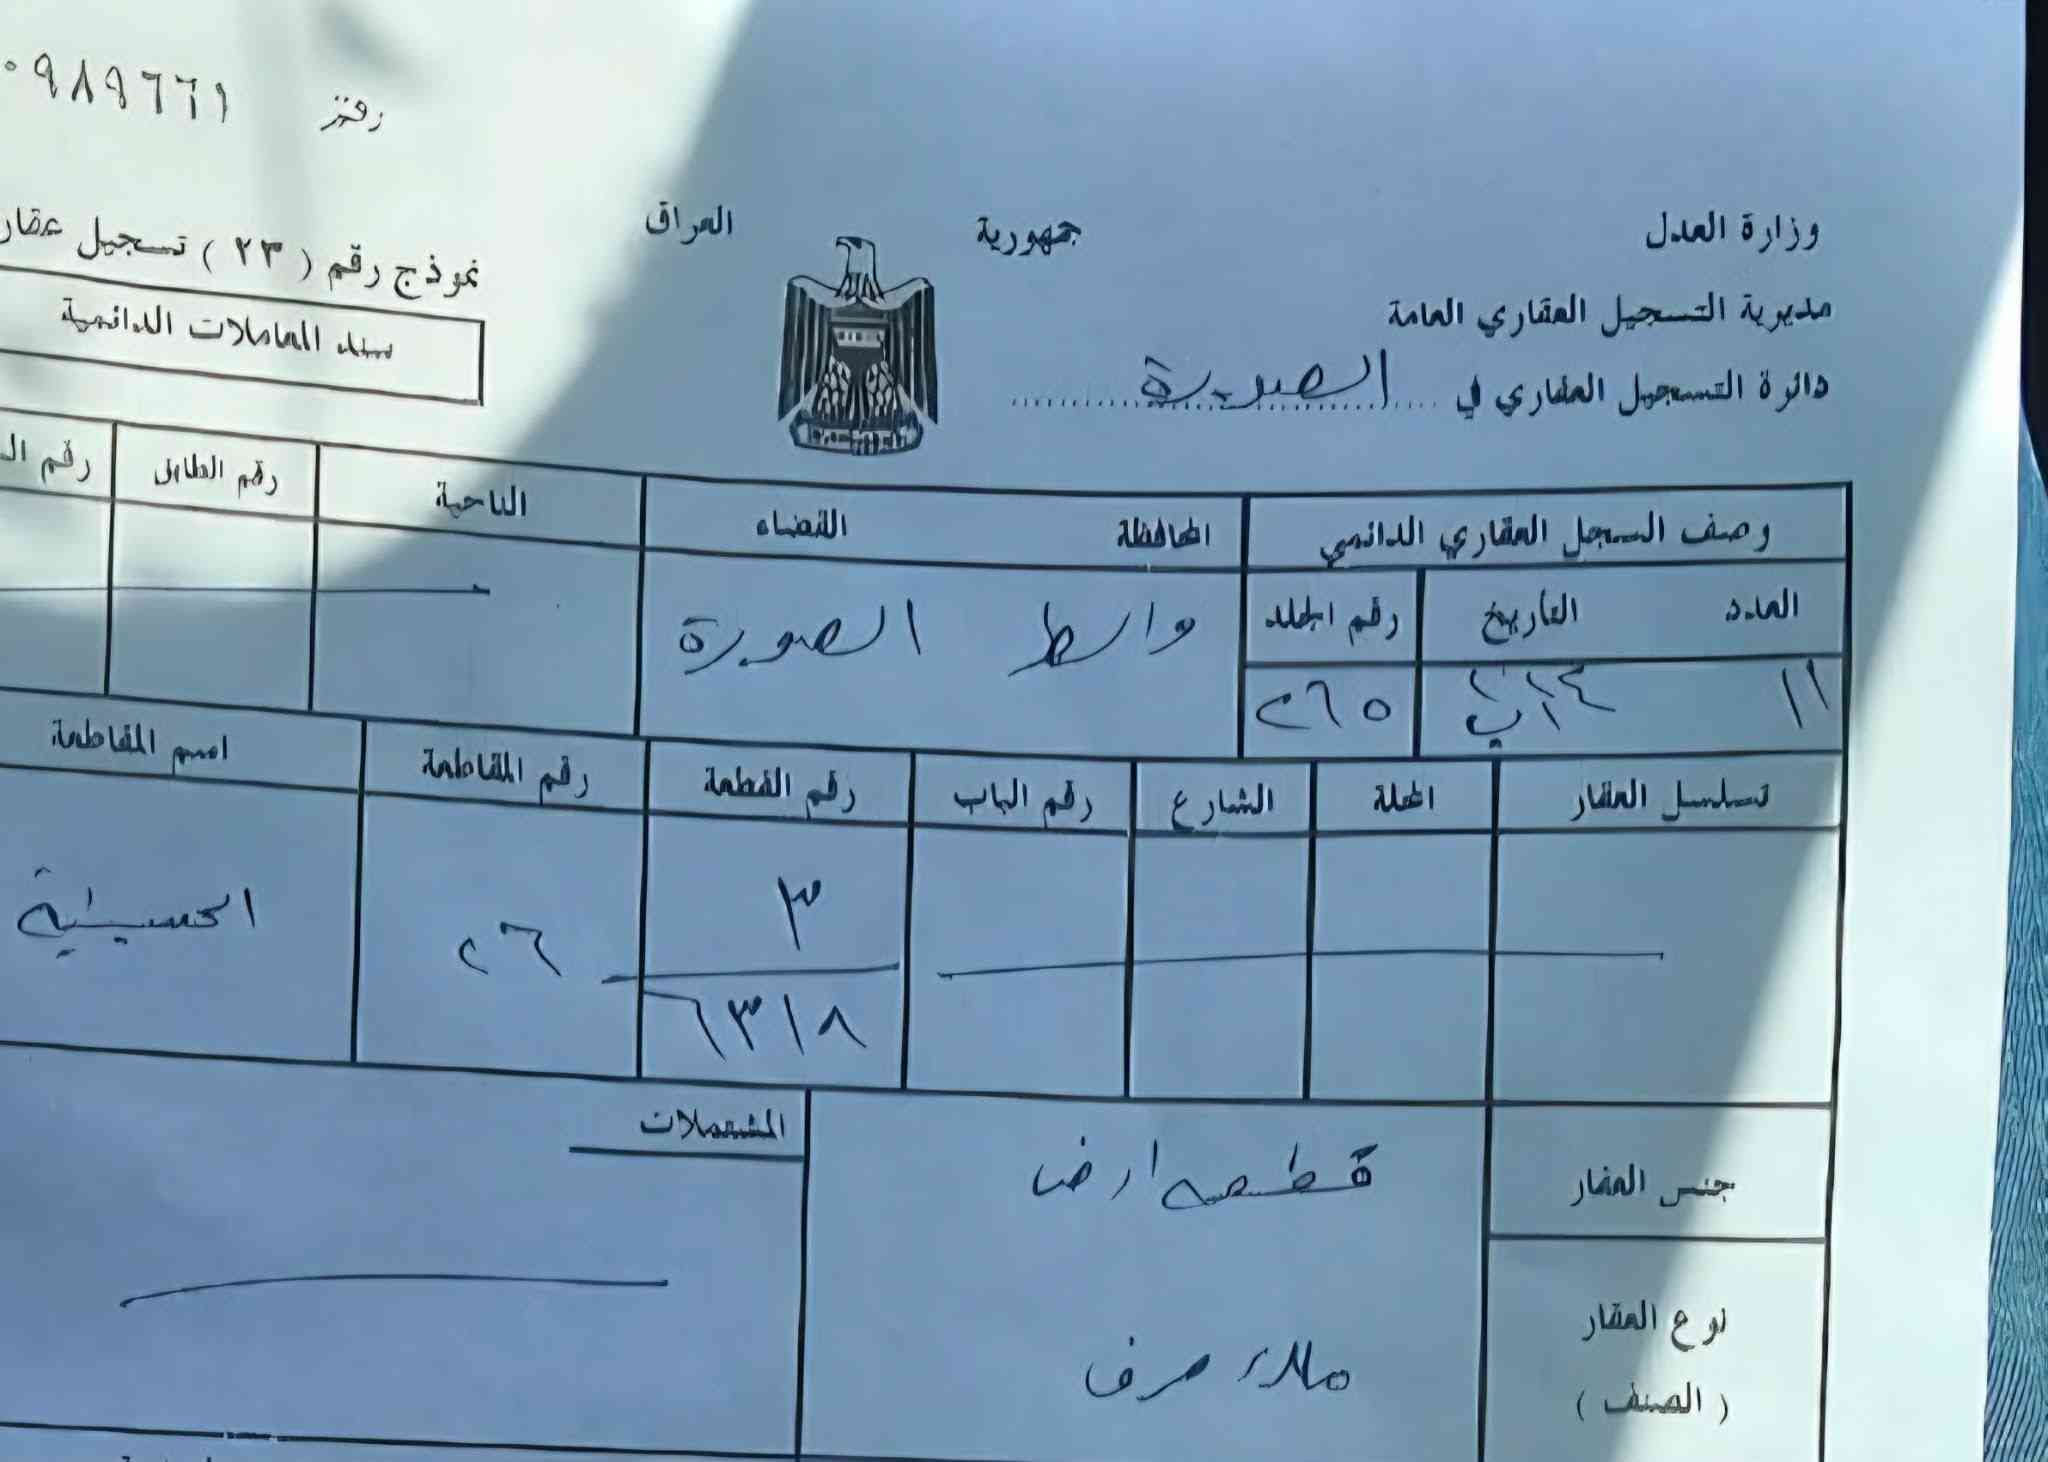 ٠٩٨٩٦٦١
جمهورية العراق
وزارة العدل
نموذج رقم ( ٢٣ ) تسجيل عقار
مديرية التسجيل العقاري العامة
سند المعاملات الدائمية
دائرة التسجيل العقاري في الصويرة
وصف السجل العقاري الدائمي
المحافظة القضاء
الناحية
رقم الطابق
رقم
العدد التاريخ
رقم المجلد
واسط الصويرة
١١
آب
٢٦٥
تسلسل العقار
المحلة
الشارع
رقم الباب
رقم القطعة
رقم المقاطعة
اسم المقاطعة
٣
٦٣١٨
٢٦
الحسينية
جنس العقار
قطعه ارض
المشتملات
نوع العقار
( الصنف )
ملك صرف